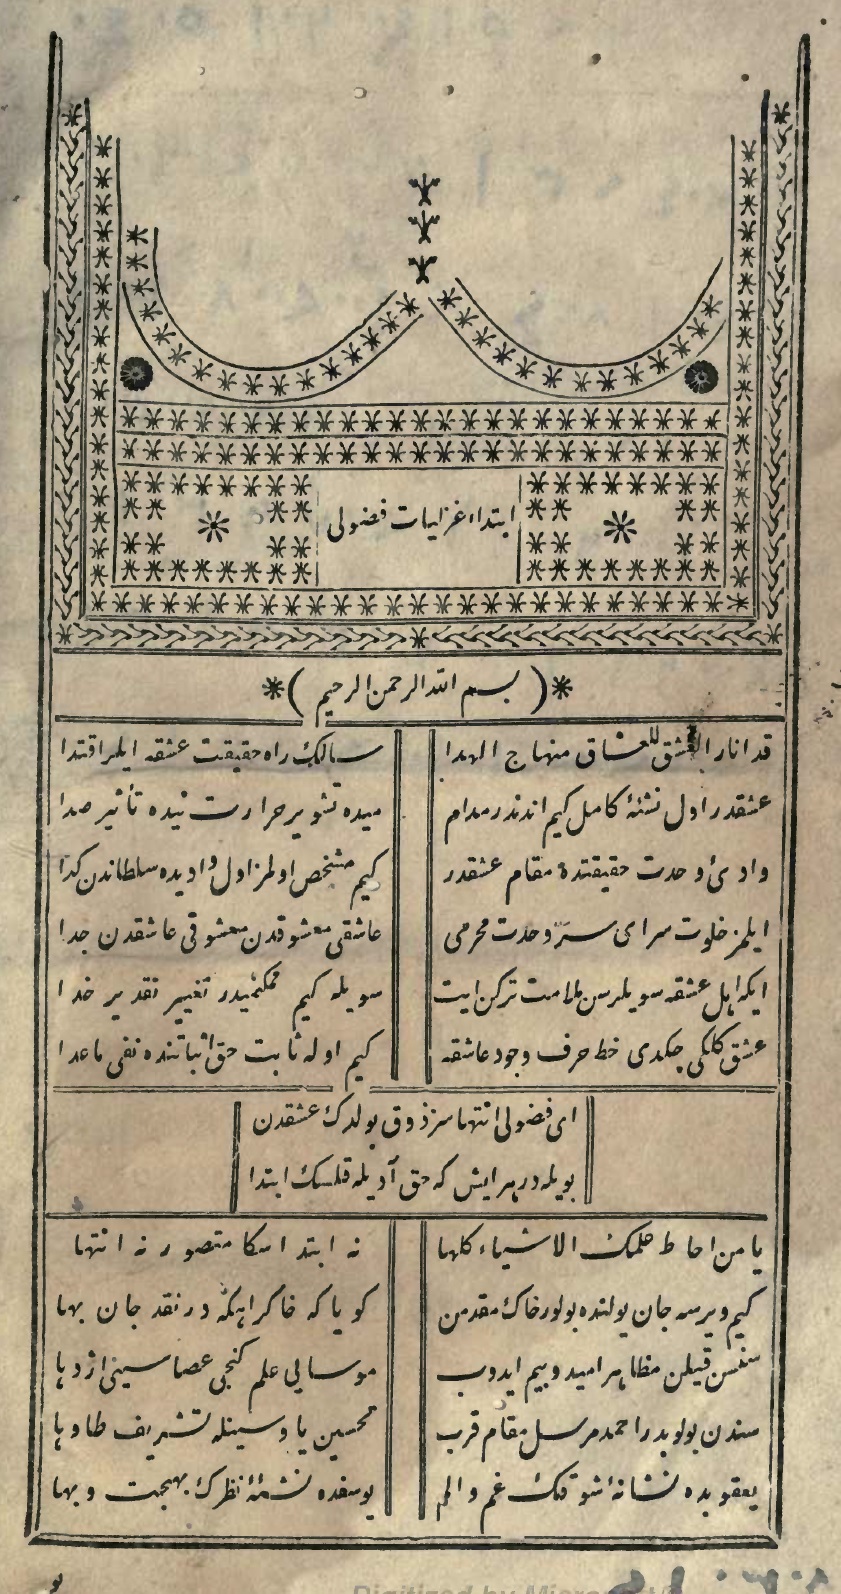 ابتداء غزليات فضولى
بسم الله الرحمن الرحيم
قد انار العشق للعشاق منهاج الهدا
سالك راه حقيقت عشقه ايلر اقتدا
عشقدر اول نشئهٔ كامل كيم اندندر مدام
ميده تشوير حرارت نيده تأثير صدا
وادئ وحدت حقيقتده مقام عشقدر
كيم مشخص اولمز اول واديده سلطاندن كدا
ايلمز خلوت سراى سرّ وحدت محرمى
عاشقى معشوقدن معشوقى عاشقدن جدا
ايكه اهل عشقه سويلرسن ملامت تركن ايت
سويله كيم ممكنميدر تغيير تقدير خدا
عشق كلكى چكدى خط حرف وجود عاشقه
كيم اوله ثابت حق اثباتنده نفى ماعدا
اى فضولى انتهاسز ذوق بولدك عشقدن
بويله در هر ايش كه حق آديله قلسك ابتدا
يا من احاط علمك الاشياء كلها
نه ابتدا سكا متصور نه انتها
كيم ويرسه جان يولنده بولور خاك مقدمن
كويا كه خاكراهكه در نقد جان بها
سنسن قيلن مظاهر اميد وبيم ايدوب
موسايى علم كنجى عصاسينى اژدها
سندن بولوبدر احمد مرسل مقام قرب
تحسين يا وسينله تشريف طا وها
يعقوبده نشانهٔ شوقك غم والم
يوسفده نشئهٔ نظرك بهجت وبها